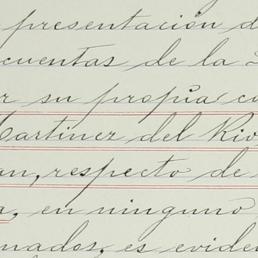 presentación d
cuentas de la
r su propia cu
Martinez del Rio
an, respecto de
a, en ninguno
nados, es eviden